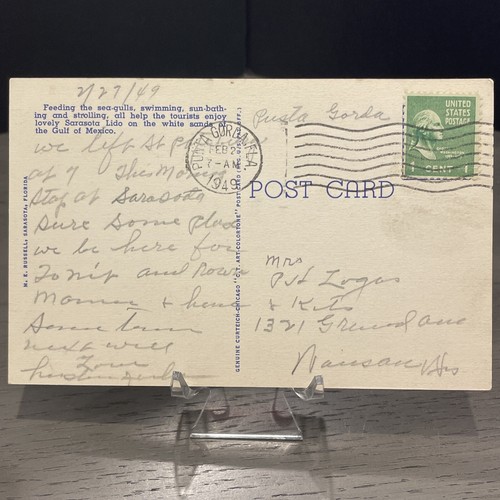 2/27/49
Feeding the sea-gulls, swimming, sun-bath-
ing and strolling, all help the tourists enjoy
lovely Sarasota Lido on the white sands
the Gulf of Mexico.
we left St P
at 7 This Morning
Stop at Sarasota
Sure Some place
we be here for
To nit and
& home
Some time
next week
Your
M. E. RUSSELL, SARASOTA, FLORIDA
GENUINE CURTEICH-CHICAGO "C.T. ART-COLORTONE" POST CARD
PUNTA GORDA FLA
FEB 2
7-AM
1949
Punta Gorda
UNITED
STATES
POSTAGE
1 CENT 1
POST CARD
Mrs
Logas
& Kits
1321
Wausau Wis